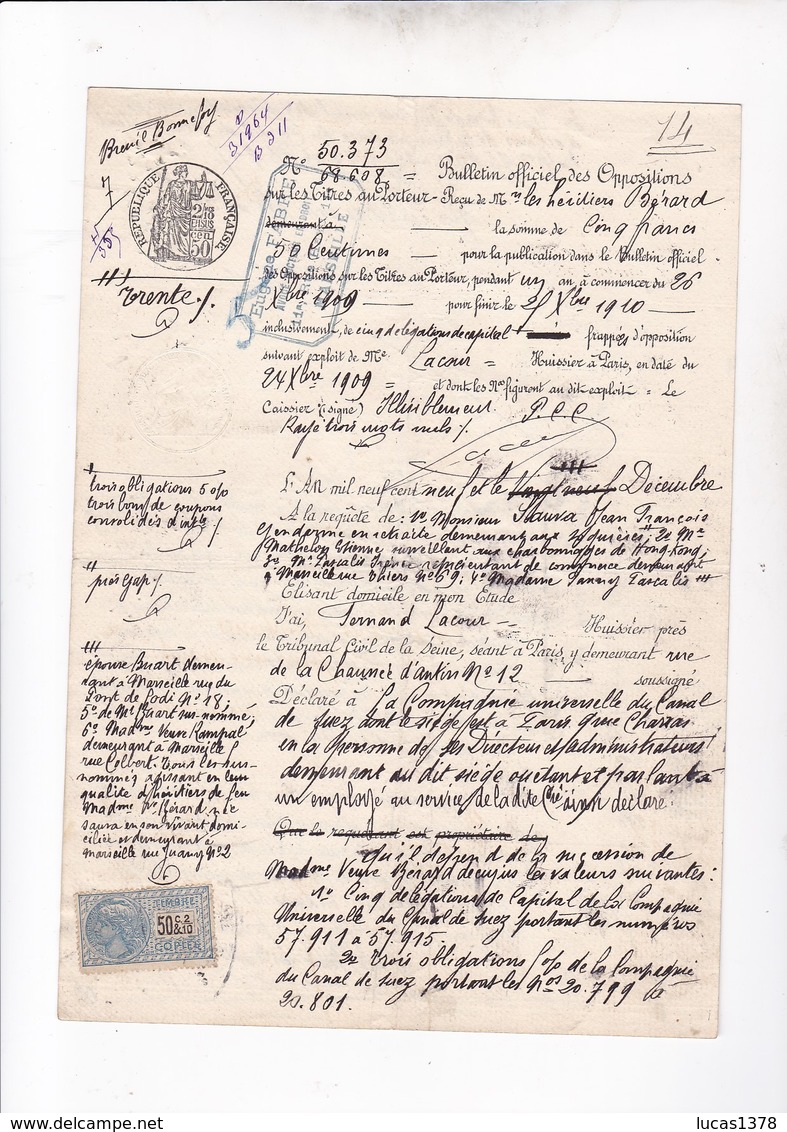 Breuil Bonnefoy
31964
B 311
14
RÉPUBLIQUE FRANÇAISE
50
Eugène FABRE
MARSEILLE
N° 50.373
68.608 = Bulletin officiel des Oppositions
sur les Titres au Porteur - Reçu de Mrs les héritiers Bérard
demeurant à — la somme de Cinq francs
50 Centimes — pour la publication dans le Bulletin officiel
des Oppositions sur les Titres au Porteur, pendant un an, à commencer du 26
Xbre 1909 — pour finir le 25 Xbre 1910 —
inclusivement, de cinq délégations de capital — frappées d'opposition
suivant exploit de Me Lacour = Huissier à Paris, en date du
24 Xbre 1909 = et dont les Nos figurent au dit exploit = Le
Caissier (signé) Illisiblement P.C.C.
Rayé trois mots nuls ./.
Trente ./.
L'An mil neuf cent neuf et le vingt neuf Décembre
A la requête de : 1° Monsieur Sauva Jean François
Gendarme en retraite demeurant aux 2° Mr
Mathelon Etienne surveillant aux charbonnages de Hong-Kong,
3° Mr Pascalis représentant de commerce demeurant
à Marseille rue Thiers N° 69; 4° Madame Fanny Pascalis
Elisant domicile en mon Etude
J'ai, Fernand Lacour — Huissier près
le Tribunal Civil de la Seine, séant à Paris, y demeurant rue
de la Chaussée d'antin N° 12 — soussigné
Déclaré à La Compagnie universelle du Canal
de Suez dont le siège est à Paris 9 rue Charras
en la personne de ses Directeur et administrateurs
demeurant au dit siège où étant et parlant à
un employé au service de la dite Cie ainsi déclaré.
Que le requérant est propriétaire de
Qu'il dépend de la succession de
Madme Veuve Bérard de cujus les valeurs suivantes :
1° Cinq délégations de Capital de la Compagnie
Universelle du Canal de Suez portant les numéros
57.911 à 57.915.
2° Trois obligations 5 o/o de la Compagnie
du Canal de Suez portant les Nos 20.799 à
20.801.
trois obligations 5 o/o
trois bons de coupons
consolidés
près Gap ./.
épouse Buart demeu-
rant à Marseille rue du
Pont de Lodi N° 18;
5° de Mr Buart sus-nommé,
6° Madme Veuve Rampal
demeurant à Marseille
rue Colbert. Tous les sus-
nommés agissant en leur
qualité d'héritiers de feu
Madme Ve Bérard née
Sauva en son vivant domi-
ciliée et demeurant à
Marseille rue N° 2
TIMBRE
50 c. 2
& 10
COPIES
www.delcampe.net
lucas1378